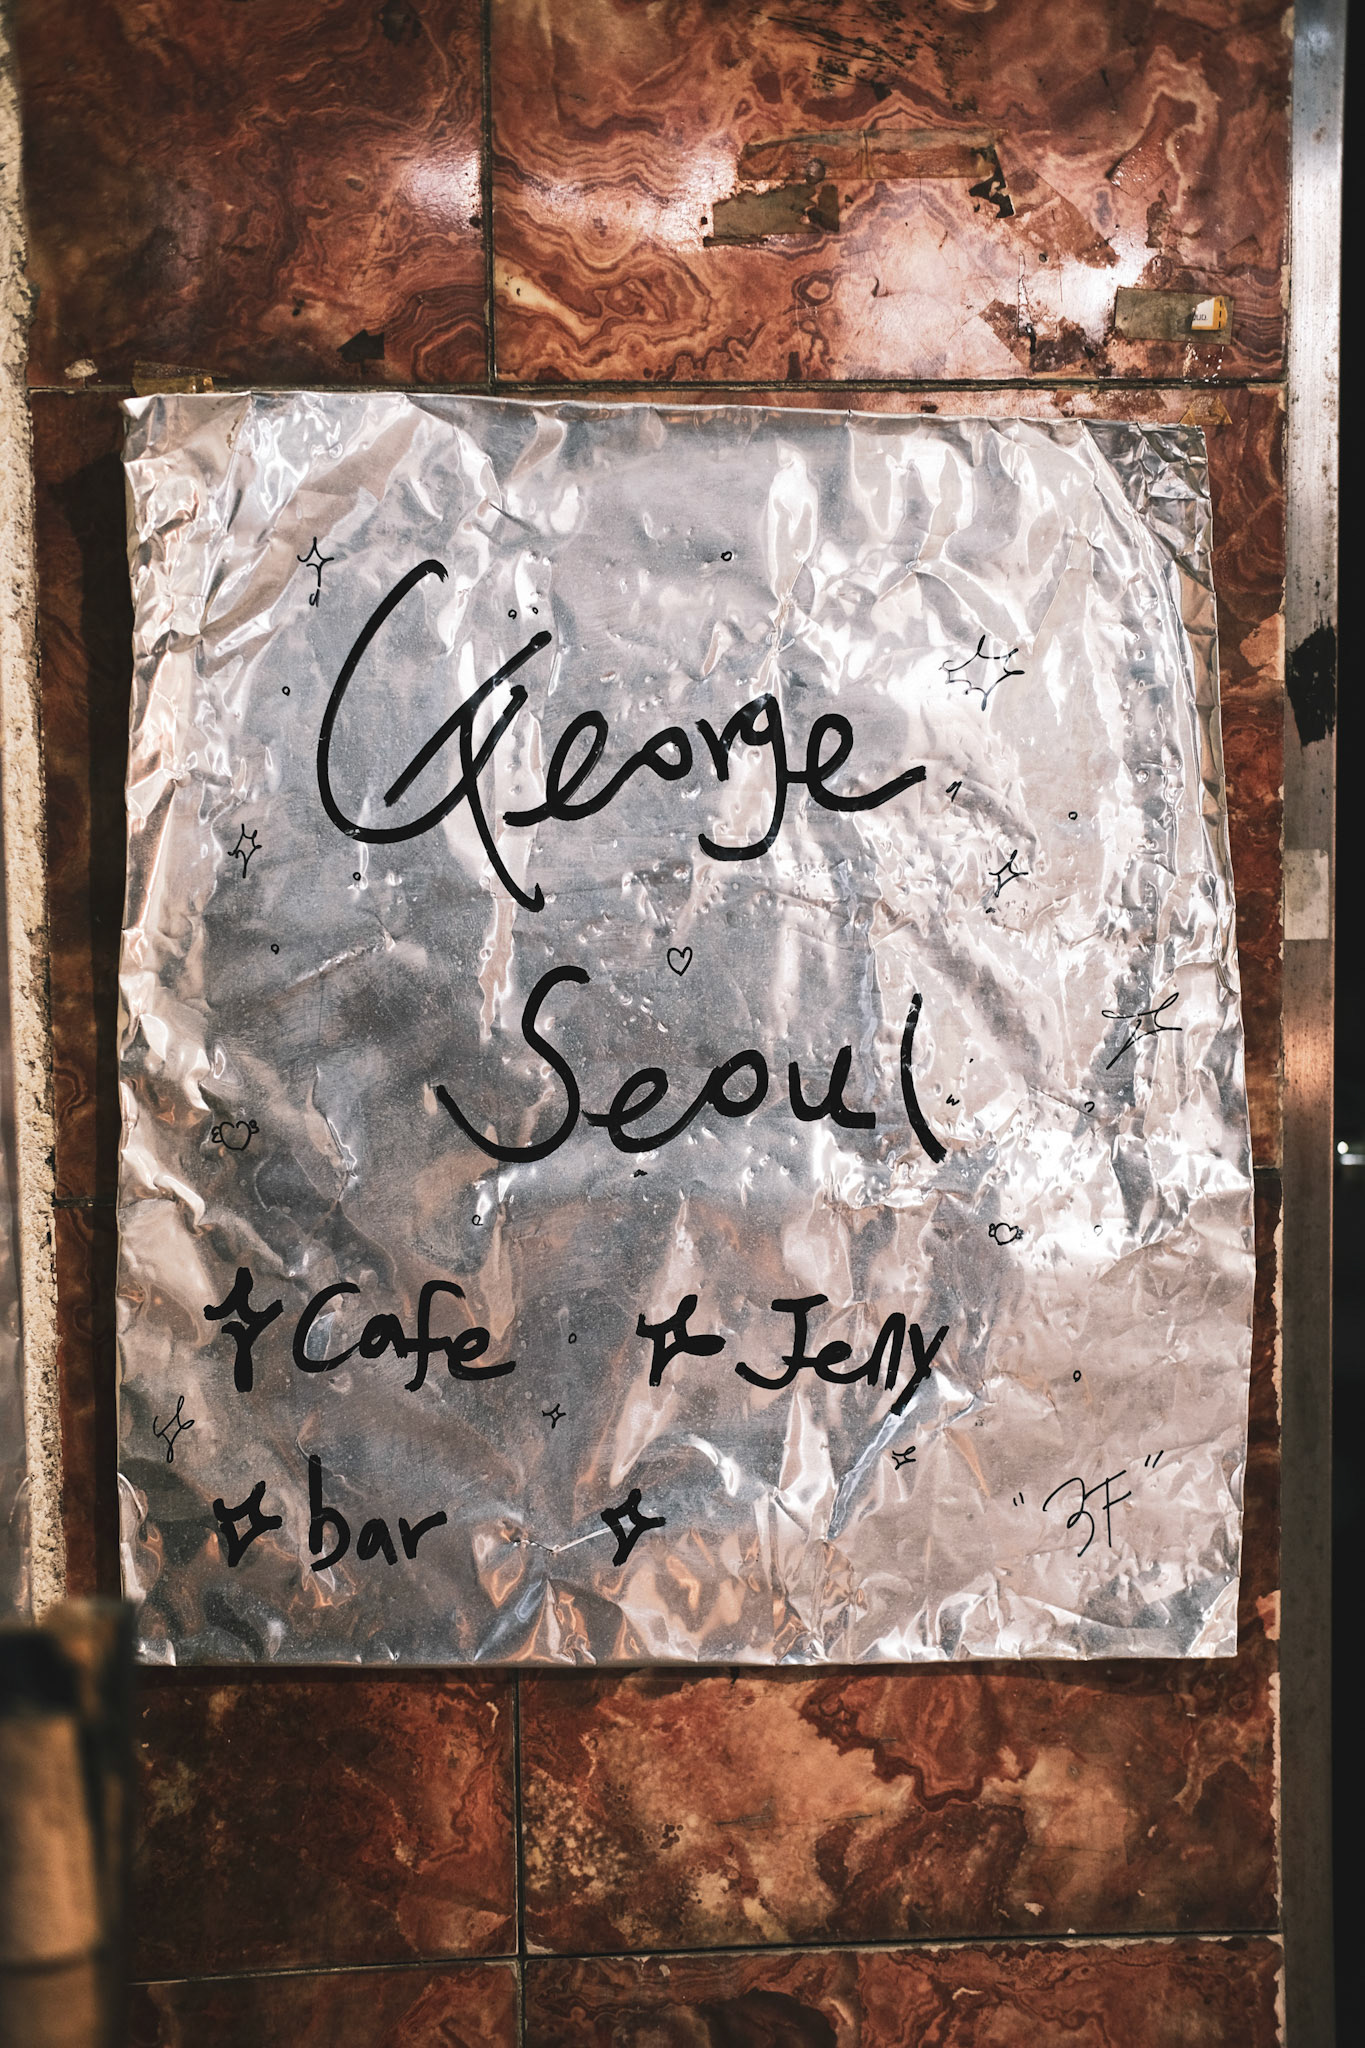 George
Seoul
Cafe Jelly
bar
"3F"